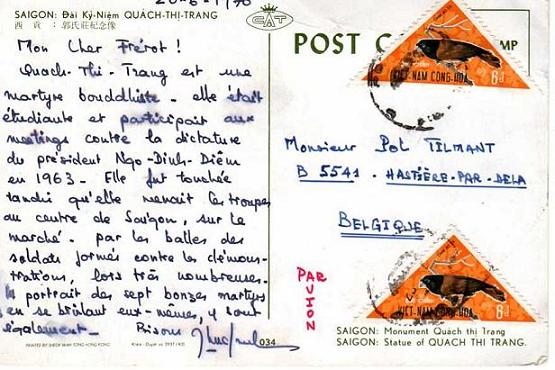 SAIGON: Đài Kỷ-Niệm QUÁCH-THI-TRANG
CAT
POST
MP
Mon Cher Frérot !
Quach-Thi-Trang est une
martyre bouddhiste - elle était
étudiante et participait aux
meetings contre la dictature
du président Ngo-Dinh-Diêm
en 1963. Elle fut touchée
tandis qu'elle menait les troupes
au centre de Saigon, sur le
marché. par les balles des
soldats formés contre les démons-
trations, lors très nombreuses.
portrait des sept bonzes martyrs
en se brûlant eux-mêmes, y sont
également - Bisous
VIET-NAM CONG-HOA 6đ
Monsieur Pol TILMANT
B 5541 - HASTIÈRE-PAR-DELA
BELGIQUE
PAR AVION
VIET-NAM CONG-HOA 6đ
SAIGON: Monument Quách thị Trang
SAIGON: Statue of QUACH THI TRANG.
034